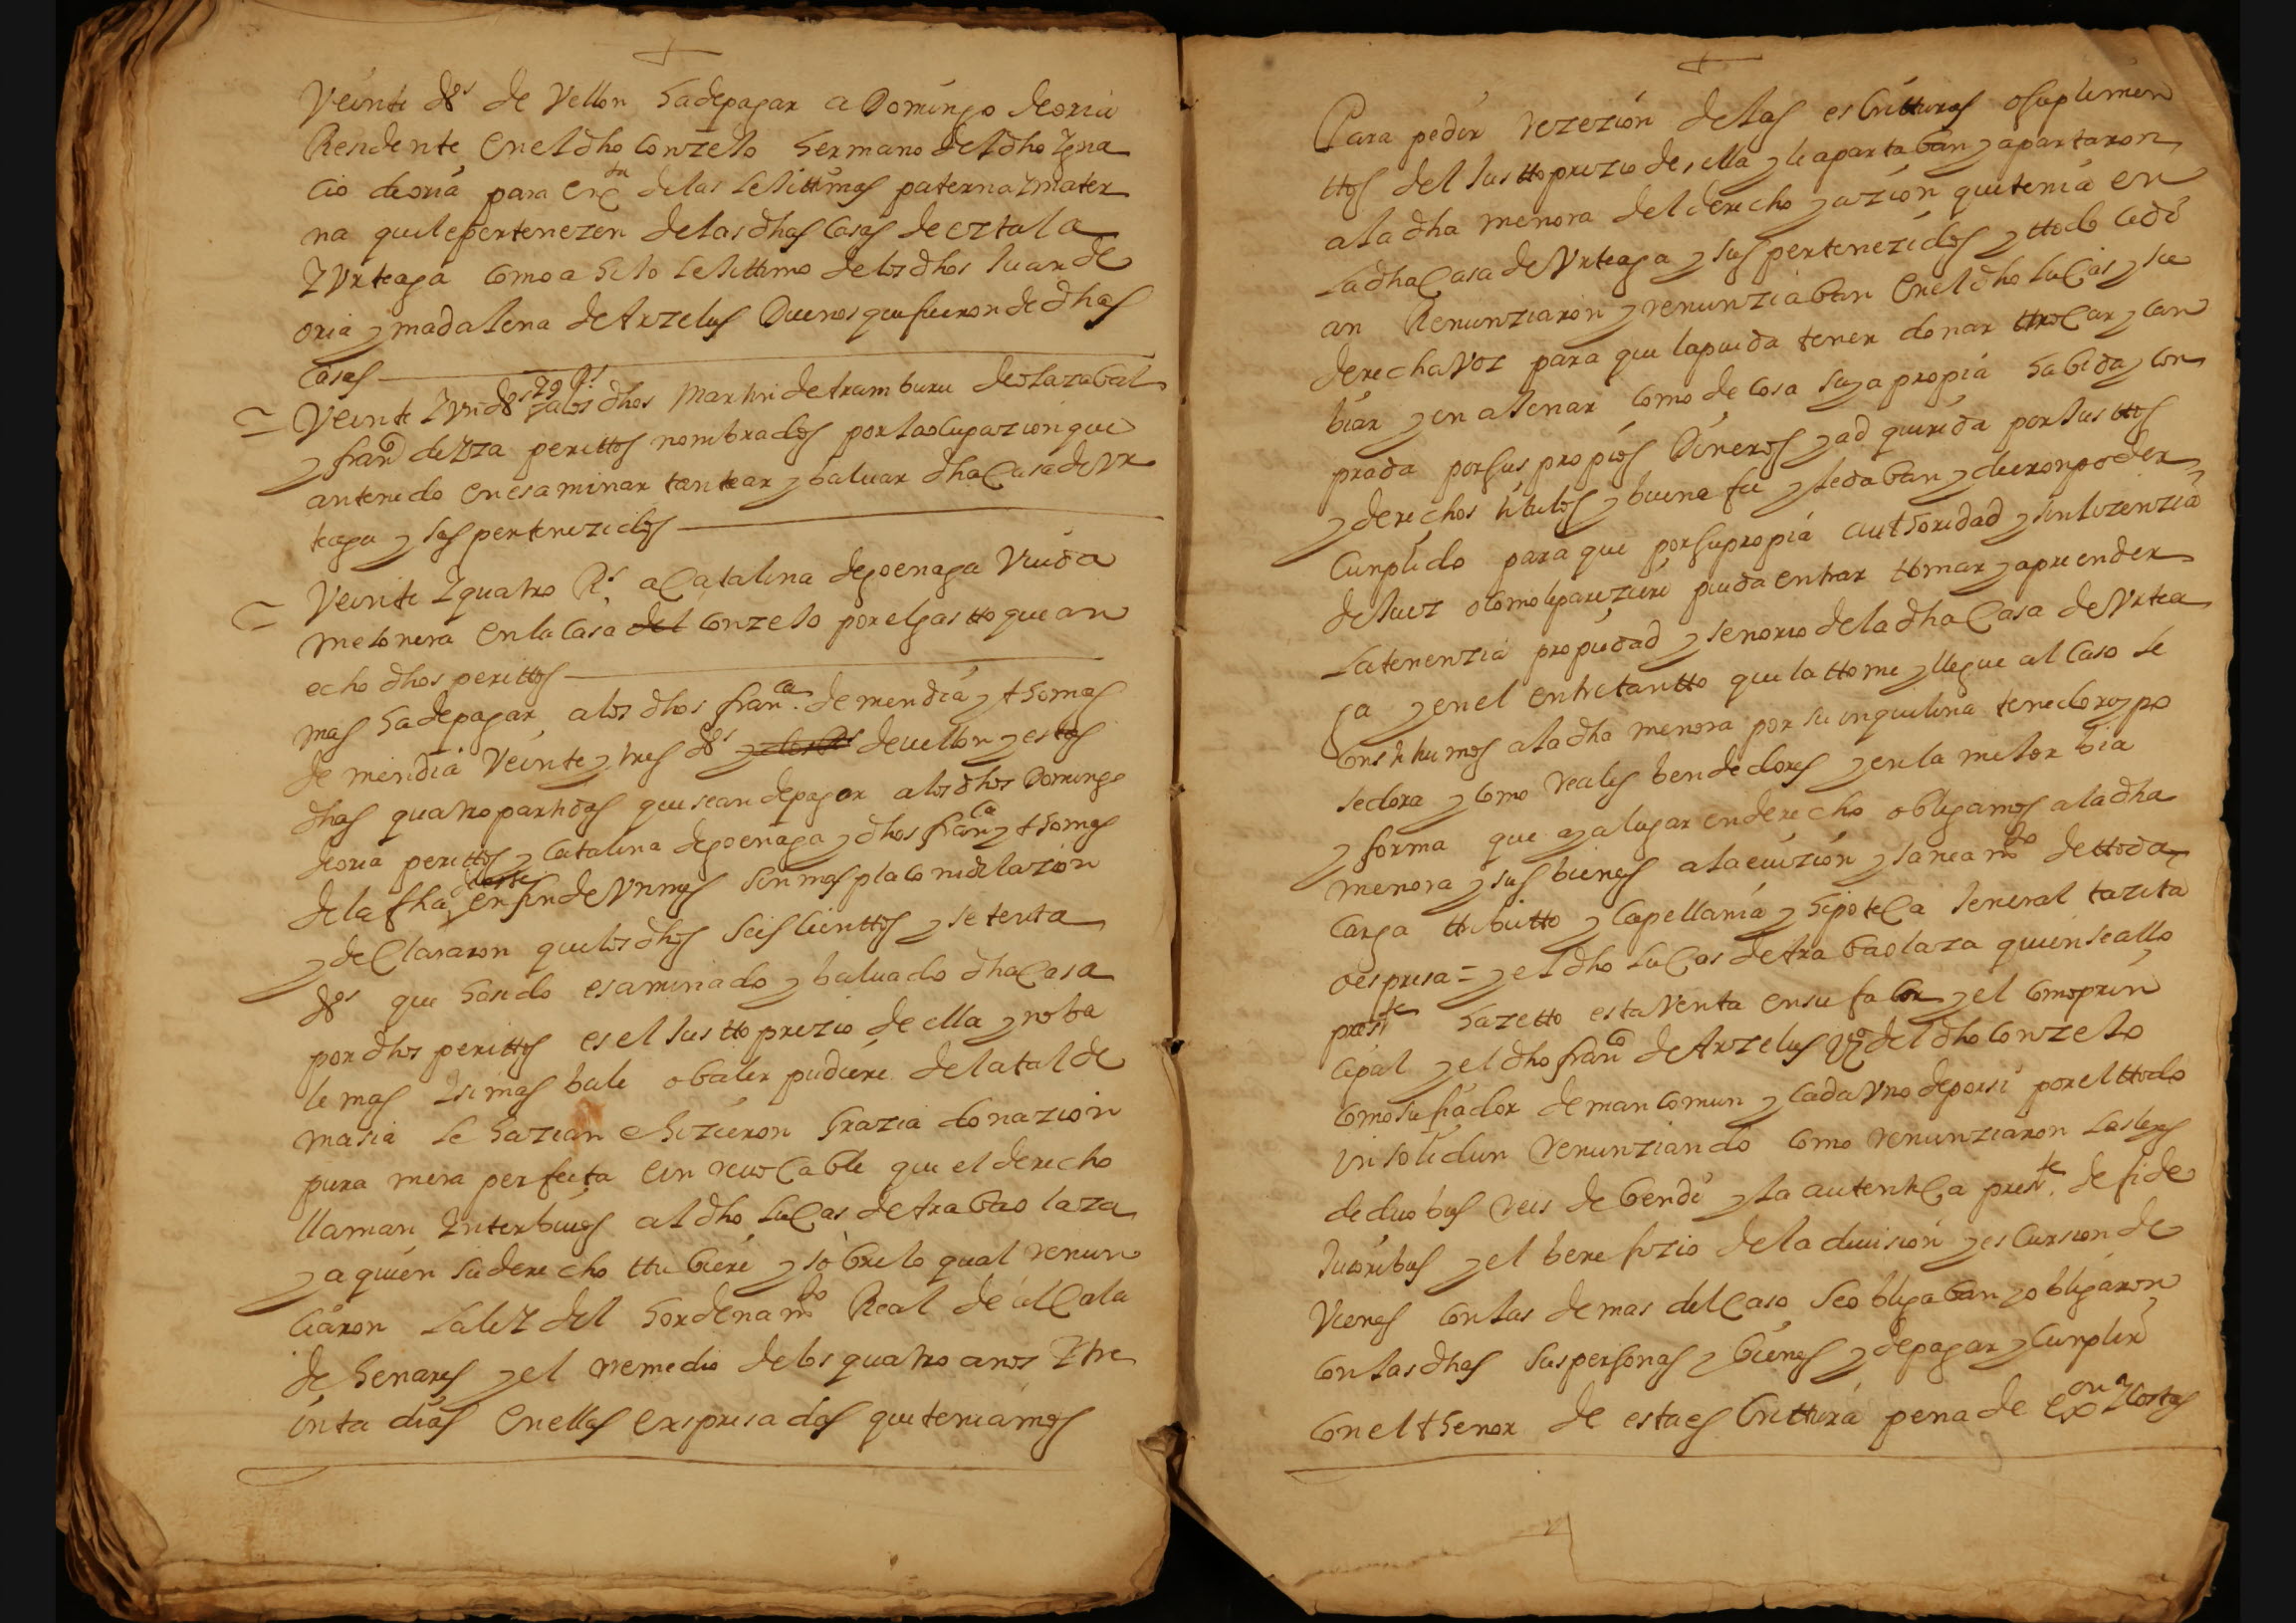 Veinte ds de Vellon ha de pagar a Domingo de oria
Residente en el dho Conzejo hermano del dho Igna
cio de oria para en qta de las lejittimas paterna I mater
na que le pertenezen de las dhas Casas de eztala
I Urteaga como a hijo lejittimo de los dhos Juan de
oria y madalena de Arzelus Duenos que fueron de dhas
Casas
Veinte I un ds 29 Rs a los dhos Martin de Aramburu de olazabal
y franco de Yza perittos nombrados por la ocupazion que
an tenido en esaminar tantear y baluar dha Casa de Ur
teaga y sus pertenezidos
Veinte I quatro Rs a Catalina de goenaga Viuda
mesonera en la Casa del Conzejo por el gastto que an
echo dhos perittos
mas ha de pagar a los dhos franca de mendia y thomas
de mendia Veinte y tres ds de vellon y estas
dhas quatro partidas que se an de pagar a los dhos Domingo
de oria perittos y Catalina de goenaga y dhos franca y thomas
de la fha deste en fin de Un mes sin mas plaço ni dilazion
y declararon que los dhos seis cienttos y setenta
ds que ha sido esaminado y baluado dha Casa
por dhos perittos es el justto prezio de ella y no ba
le mas I si mas bale o baler pudiere de la tal de
masia le hazian e hizieron grazia donazion
pura mera perfecta e inrevocable que el derecho
llaman Interbivos al dho Lucas de Arabaolaza
y a quien su derecho ttubiere y sobre lo qual renun
ciaron la leI del hordenamto Real de alCala
de henares y el remedio de los quatro anos I tre
inta dias en ellas expresadas que teniamos
Para pedir rezezion de las escritturas o suplimen
ttos del justto prezio de ella y le apartaban y apartaron
a la dha menora del derecho y azion que tenia en
la dha Casa de Urteaga y sus pertenezidos y ttodo cedi
an Renunziaron y renunziaban en el dho LuCas y su
derecha voz para que la pueda tener donar ttrocar y can
biar y en ajenar como de cosa suya propia habida y con
prada por sus propios Dineros y ad quirida por justtos
y derechos titulos y buena fee y le daban y dieron poder
Cunplido para que por su propia authoridad y sin lizenzia
de Juez o como le pareziere pueda entrar ttomar y aprender
la tenenzia propiedad y senorio de la dha Casa de Urtea
ga y en el entretantto que la ttome y llegue al Caso le
Constituimos a la dha menora por su inquilina tenedora y po
sedora y como reales bendedores y en la mejor bia
y forma que aya lugar en derecho obligamos a la dha
menora y sus bienes a la evizion y saneamto de ttoda
Carga ttributto y Capellania y hipoteCa Jeneral tazita
o espresa = y el dho LuCas de Arabaolaza quien se allo
preste hazetto esta Venta en su fabor y el como prin
cipal y el dho franco de Arzelus Vo del dho Conzejo
como su fiador de mancomun y Cada Uno de por si por el ttodo
in solidun renunziando como renunziaron las leyes
de duobus reis de bendi y la autentiCa preste de fide
jusoribus y el benefizio de la division y escursion de
Vienes con las demas del Caso se obligaban y obligaron
con las dhas sus personas y bienes y de pagar y Cunplir
con el thenor de esta escrittura pena de exon I Costas